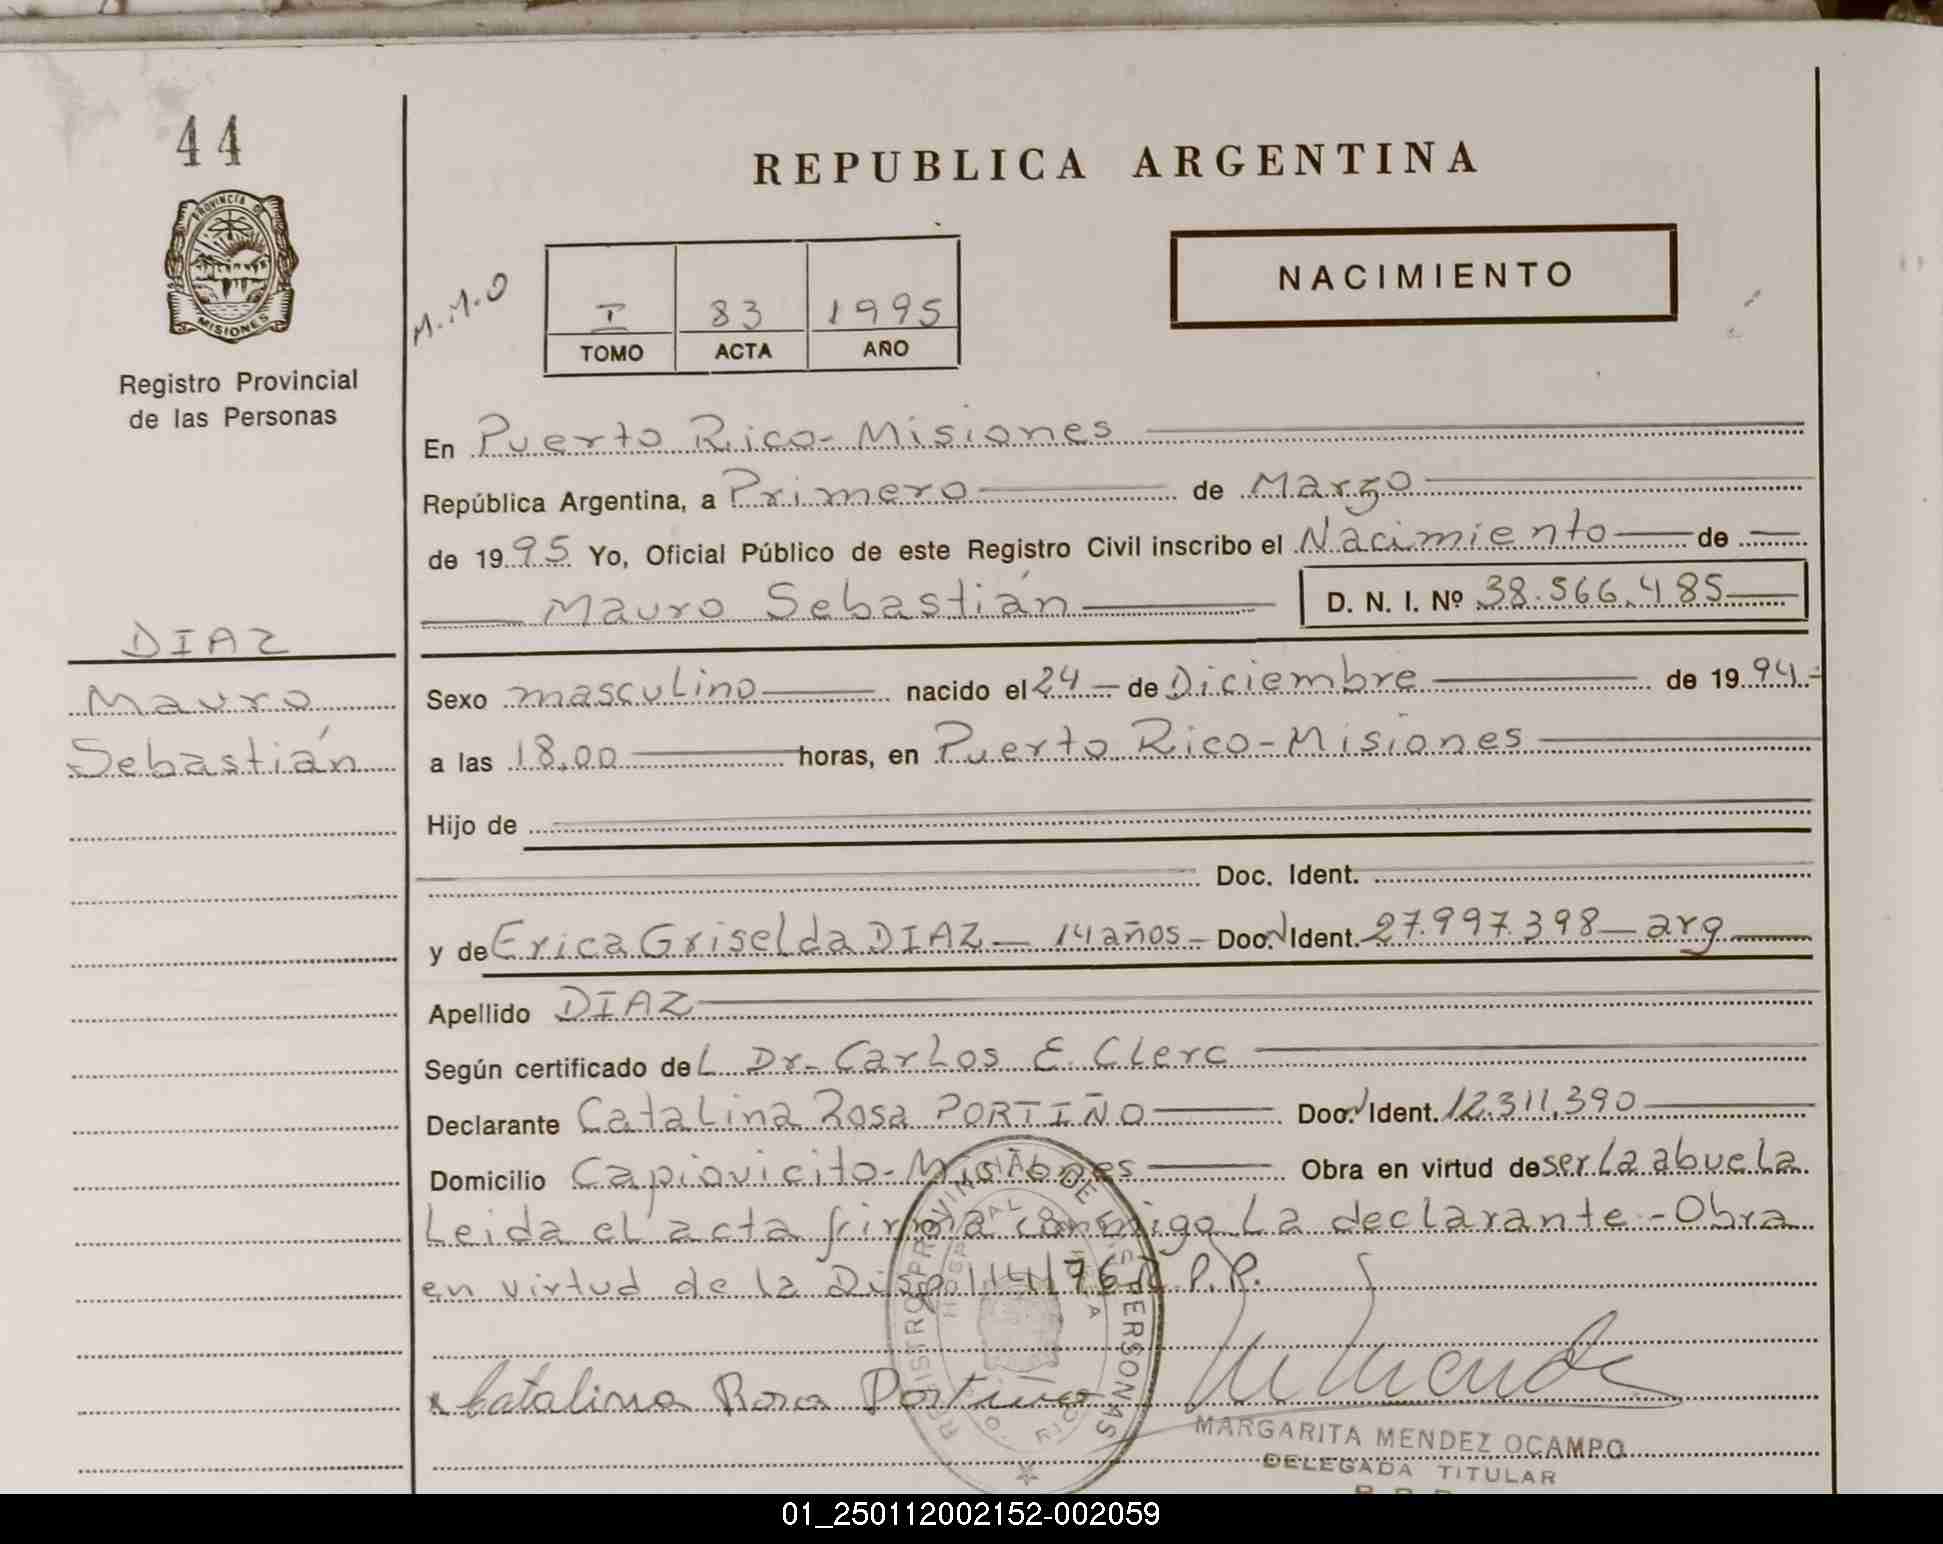 44
REPUBLICA ARGENTINA
PROVINCIA DE
MISIONES
Registro Provincial
de las Personas
M.M.O
I 83 1995
TOMO ACTA AÑO
NACIMIENTO
En Puerto Rico-Misiones
República Argentina, a Primero de Marzo
de 1995 Yo, Oficial Público de este Registro Civil inscribo el Nacimiento de
Mauro Sebastián D. N. I. Nº 38.566.485
DIAZ
Mauro
Sebastián
Sexo masculino nacido el 24 de Diciembre de 1994.-
a las 18,00 horas, en Puerto Rico-Misiones
Hijo de
Doc. Ident.
y de Erica Griselda DIAZ - 14 años - Doc. Ident. 27.997.398 - arg
Apellido DIAZ
Según certificado del Dr. Carlos E. Clerc
Declarante Catalina Rosa PORTIÑO Doc. Ident. 12.311.390
Domicilio Capiovicito-Misiones Obra en virtud de ser la abuela
Leida el acta firma conmigo La declarante-Obra
en virtud de la Disp. 114/76 R.P.P.
REGISTRO PROVINCIAL DE LAS PERSONAS
Catalina Rosa Portiño
MARGARITA MENDEZ OCAMPO
DELEGADA TITULAR
01_250112002152-002059